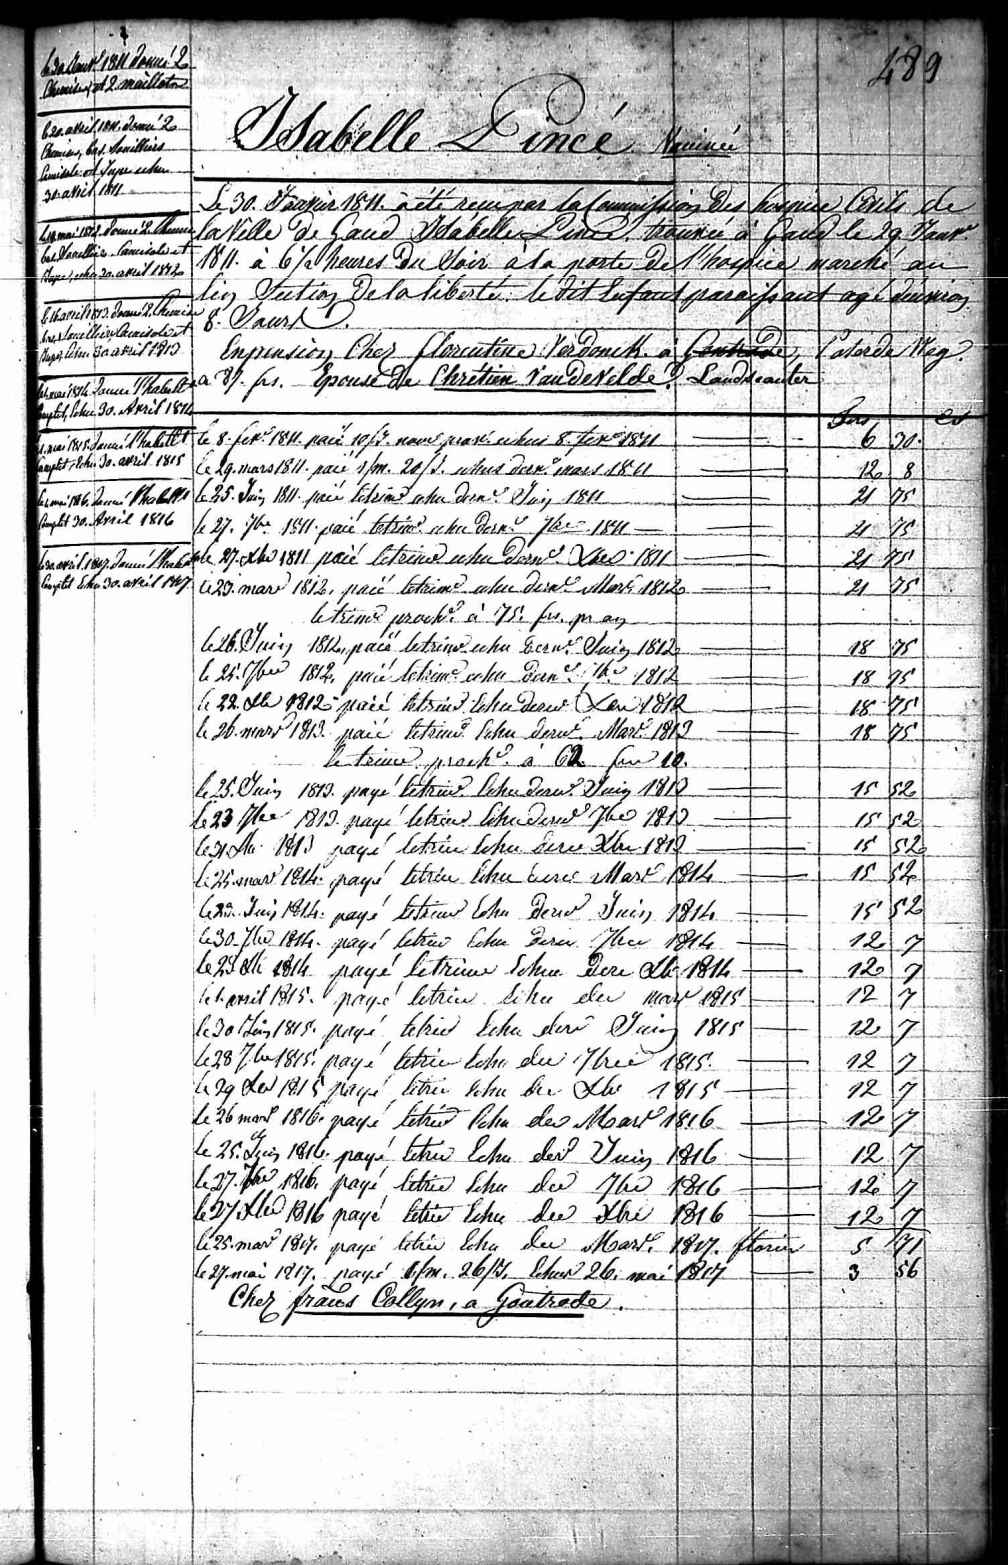 489
Isabelle Pincé
le 30 Janv.r 1811 donné 2
Chemises et 2 maillots
le 20 avril 1811 donné 2
Chemises, bas, Souilliers
Camisole et Jupe echu
30 avril 1811
donné 2 Chemises
bas Souilliers Camisole et
Jupe, echu 30. avril 1812
le 16 avril 1813. donné 2. Chemises
bas Souilliers Camisole et
Jupe, echu 30 avril 1813
mai 1814. Donné l'habillt
complet, Echu 30. Avril 1814
mai 1815. Donné l'habillt
complet, Echu 30. avril 1815
mai 1816. Donné l'habillt
complet 30. Avril 1816
le 30 avril. 1817. donné l'habillt
complet Echu 30. avril 1817
Le 30. Janvier 1811. a été reçu par la Commission des hospices Civils de
la Ville de Gand Isabelle Pincé, trouvée à Gand le 29 Janv.r
1811. à 6 1/2 heures Du Soir a la porte de l'hospice marché au
lin Section De la liberté, le dit Enfant paraissant agé d'environ
8. Jours.
En pension Chez florentine Verdonck à Gontrode,
a 87. frs. Epouse de Chrétien Van de Velde
frs Cs
le 8. fevr. 1811. paié 19/J. echus 8. fevr. 1811 6 30
le 29. mars 1811. paié 1/m. 20/J. echus dern.r mars 1811 12 8
le 25. Juin 1811. paié le trim.e echu dern.r Juin 1811 21 75
le 27. 7bre 1811. paié le trim.e echu dern.r 7bre 1811 21 75
le 27. Xbre 1811 paié le trim.e echu dern.r Xbre 1811 21 75
le 23. mars 1812. paié le trim.e echu dern.r Mars 1812 21 75
le trim.e proch.n à 75. frs. pr an
le 26. Juin 1812. paié le trim.e echu dern.r Juin 1812 18 75
le 25. 7bre 1812. paié le trim.e echu dern.r 7bre 1812 18 75
le 22. Xbre 1812 paié le trim.e Echu dern.r Xbre 1812 18 75
le 26. mars 1813. paié le trim.e Echu dern.r Mars 1813 18 75
le trim.e proch.n à 62 frs 10.
le 25. Juin 1813. payé le trim.e Echu dern.r Juin 1813 15 52
le 23 7bre 1813. payé le trim.e Echu dern.r 7bre 1813 15 52
le 31 Xbre 1813 payé le trim.e Echu dern.r Xbre 1813 15 52
le 25. mars 1814. payé le trim.e Echu dern.r Mars 1814 15 52
le 23. Juin 1814. payé le trim.e Echu Dern.r Juin 1814 15 52
le 30. 7bre 1814. payé le trim.e Echu Dern.r 7bre 1814 12 7
le 23 Xbre 1814 payé le trim.e Echu Dern.r Xbre 1814 12 7
le 1. avril 1815. payé le trim.e Echu der mars 1815 12 7
le 30 Juin 1815. payé le trim.e Echu dern.r Juin 1815 12 7
le 28 7bre 1815. payé le trim.e Echu der 7bre 1815. 12 7
le 29 Xbre 1815 payé le trim.e Echu der Xbre 1815 12 7
le 26 mars 1816. payé le trim.e Echu der Mars 1816 12 7
le 25. Juin 1816. payé le trim.e Echu der Juin 1816 12 7
le 27. 7bre 1816. payé le trim.e Echu der 7bre 1816 12 7
le 27 Xbre 1816 payé le trim.e Echu der Xbre 1816 12 7
le 25. mars 1817. payé le trim.e Echu der Mars. 1817. florins 5 71
le 27. mai 1817. payé 1/m. 26/J. Echus 26. mai 1817 3 56
Chez frans Collyn, a Gontrode.